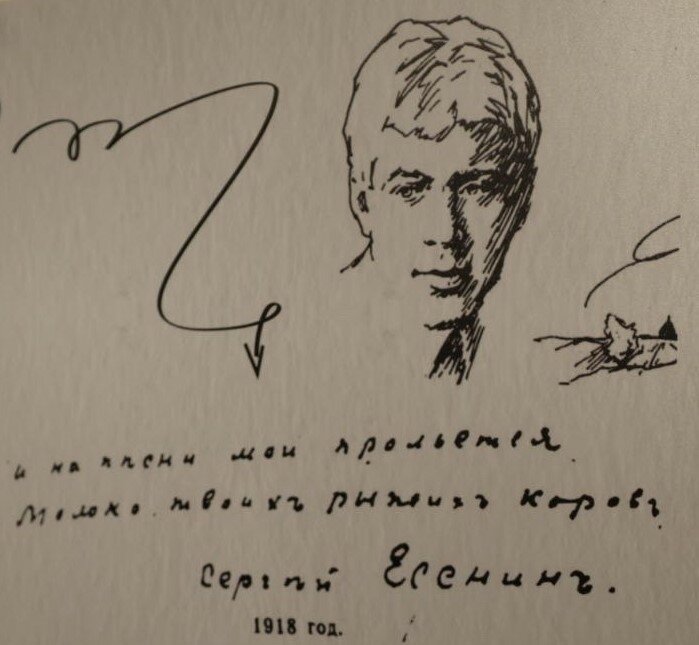 и на пѣсни мои прольется
молоко твоихъ рыжихъ коровъ
Сергѣй Есенинъ.
1918 год.